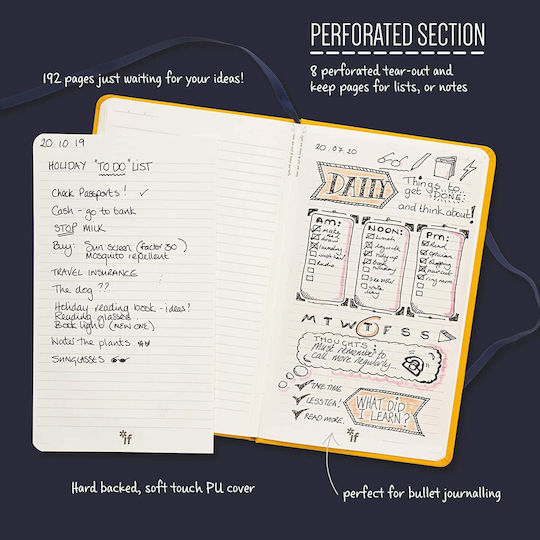 PERFORATED SECTION
8 perforated tear-out and
keep pages for lists, or notes
192 pages just waiting for your ideas!
20.10.19
HOLIDAY "TO DO" LIST
Check Passports!
Cash - go to bank
STOP MILK
Buy: Sun screen (factor 50)
Mosquito repellent
TRAVEL INSURANCE
The dog ??
Holiday reading book - ideas!
Reading glasses
Book light (NEW ONE)
Water the plants
SUNGLASSES
*if
20.07.20
DAILY
Things to
get DONE
and think about!
AM:
laundry
Radio
NOON:
lunch
PM:
shopping
M T W T F S S
THOUGHTS
Must remember to
call more regularly...
TAKE TIME
LESS TEA!
READ MORE.
WHAT DID
I LEARN?
*if
Hard backed, soft touch PU cover
perfect for bullet journalling